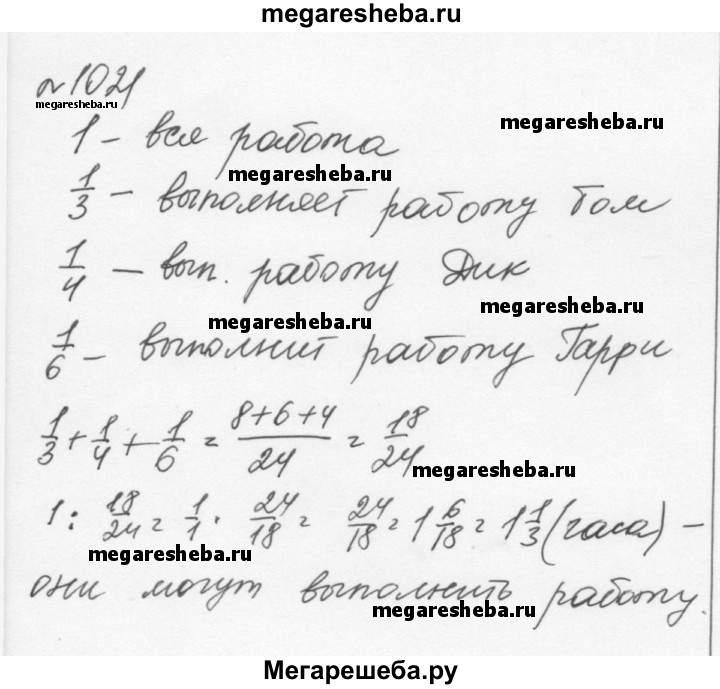 megaresheba.ru
№1021
megaresheba.ru
1 – вся работа
megaresheba.ru
megaresheba.ru
1/3 – выполняет работу Том
1/4 – вып. работу Дик
megaresheba.ru
megaresheba.ru
1/6 – выполнит работу Гарри
1/3 + 1/4 + 1/6 = (8+6+4)/24 = 18/24
megaresheba.ru
1 : 18/24 = 1/1 · 24/18 = 24/18 = 1 6/18 = 1 1/3 (часа) –
megaresheba.ru
они могут выполнить работу.
megaresheba.ru
Мегарешеба.ру